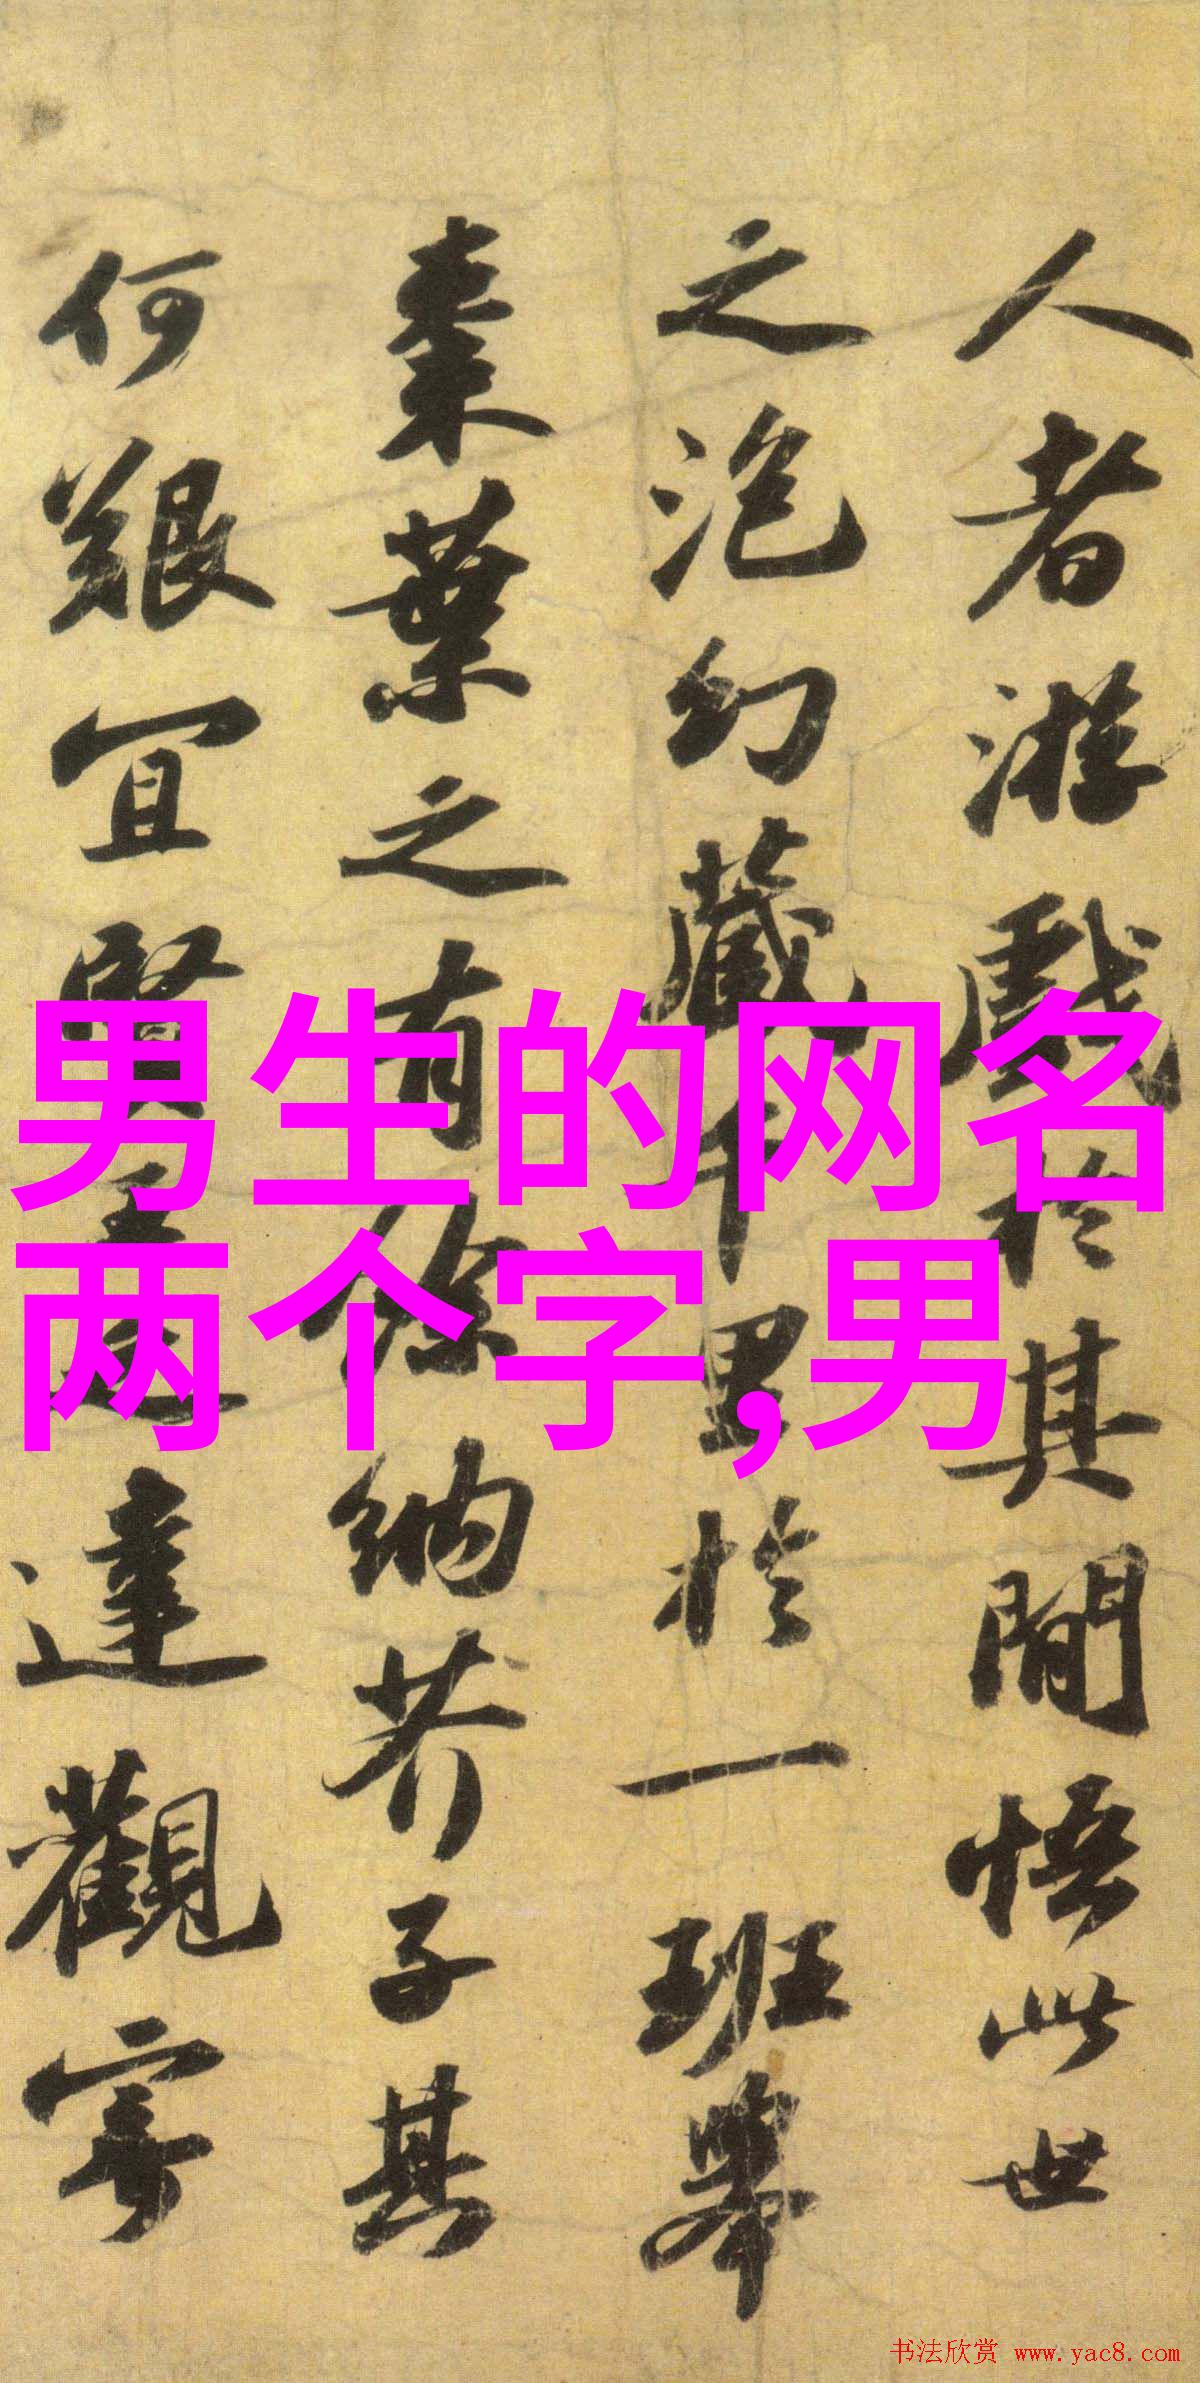 人者游戲於其間悟此世
之泡幻藏千里於一班舉
棗葉之有餘納芥子其
何艱宜賢王之達觀寄
男生的网名
两个字,男
书法欣赏 www.yac8.com